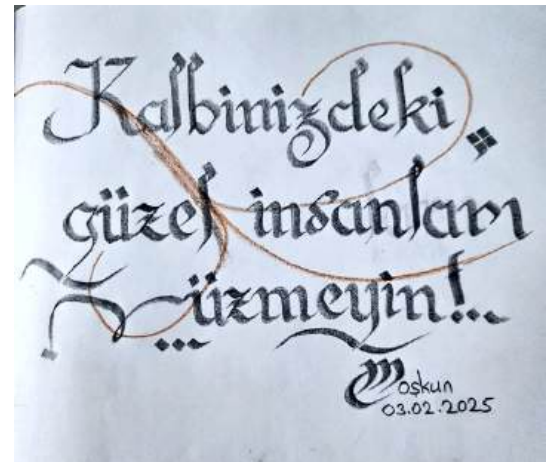 Kalbinizdeki
güzel insanları
üzmeyin!..
Coşkun
03.02.2025